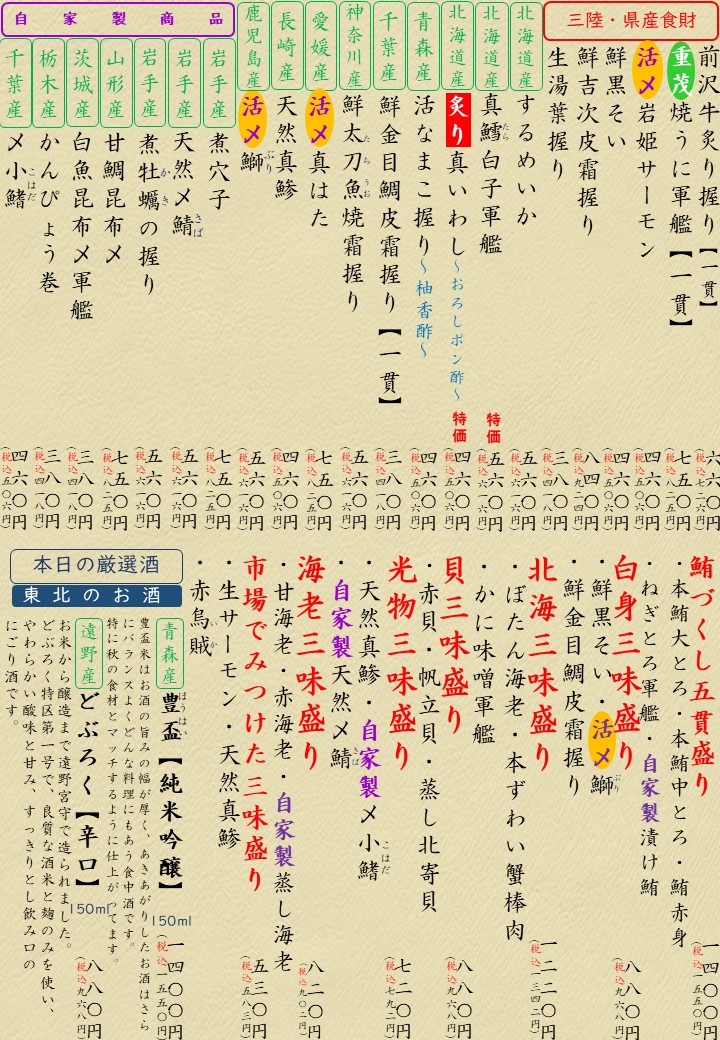 三陸・県産食財
前沢牛炙り握り【一貫】 六六〇円
(税込七二六円)
重茂焼うに軍艦【一貫】 七五〇円
(税込八二五円)
活〆岩姫サーモン 四六〇円
(税込五〇六円)
鮮黒そい 四六〇円
(税込五〇六円)
鮮吉次皮霜握り 八四〇円
(税込九二四円)
生湯葉握り 三八〇円
(税込四一八円)
北海道産 するめいか 五六〇円
(税込六一六円)
北海道産 真鱈白子軍艦 特価 五六〇円
たら
(税込六一六円)
北海道産 炙り真いわし〜おろしポン酢〜 特価 四六〇円
(税込五〇六円)
青森産 活なまこ握り〜柚香酢〜 四六〇円
(税込五〇六円)
千葉産 鮮金目鯛皮霜握り【一貫】 三八〇円
(税込四一八円)
神奈川産 鮮太刀魚焼霜握り 五六〇円
たちうお
(税込六一六円)
愛媛産 活〆真はた 七五〇円
(税込八二五円)
長崎産 天然真鯵 四六〇円
(税込五〇六円)
鹿児島産 活〆鰤 五六〇円
ぶり
(税込六一六円)
自家製商品
岩手産 煮穴子 七五〇円
(税込八二五円)
岩手産 天然〆鯖 五六〇円
さば
(税込六一六円)
岩手産 煮牡蠣の握り 五六〇円
かき
(税込六一六円)
山形産 甘鯛昆布〆 七五〇円
(税込八二五円)
茨城産 白魚昆布〆軍艦 三八〇円
(税込四一八円)
栃木産 かんぴょう巻 三八〇円
(税込四一八円)
千葉産 〆小鰭 四六〇円
こはだ
(税込五〇六円)
鮪づくし五貫盛り 一四〇〇円
・本鮪大とろ・本鮪中とろ・鮪赤身
・ねぎとろ軍艦・自家製漬け鮪
白身三味盛り 八八〇円
(税込九六八円)
・鮮黒そい・活〆鰤
ぶり
・鮮金目鯛皮霜握り
北海三味盛り 一二二〇円
(税込一三四二円)
・ぼたん海老・本ずわい蟹棒肉
・かに味噌軍艦
貝三味盛り 八八〇円
(税込九六八円)
・赤貝・帆立貝・蒸し北寄貝
光物三味盛り 七二〇円
(税込七九二円)
・天然真鯵・自家製〆小鰭
こはだ
・自家製天然〆鯖
さば
海老三味盛り 八二〇円
(税込九〇二円)
・甘海老・赤海老・自家製蒸し海老
市場でみつけた三味盛り 五三〇円
(税込五八三円)
・生サーモン・天然真鯵
・赤烏賊
いか
本日の厳選酒
東北のお酒
青森産 豊盃【純米吟醸】 150ml 一四〇〇円
ほうはい
豊盃米はお酒の旨みの幅が厚く、あきあがりしたお酒はさら
にバランスよくどんな料理にもあう食中酒です。
特に秋の食材とマッチするように仕上がってます。
遠野産 どぶろく【辛口】 150ml 八八〇円
(税込九六八円)
お米から醸造まで遠野宮守で造られました。
どぶろく特区第一号で、良質な酒米と麹のみを使い、
やわらかい酸味と甘み、すっきりとし飲み口の
にごり酒です。